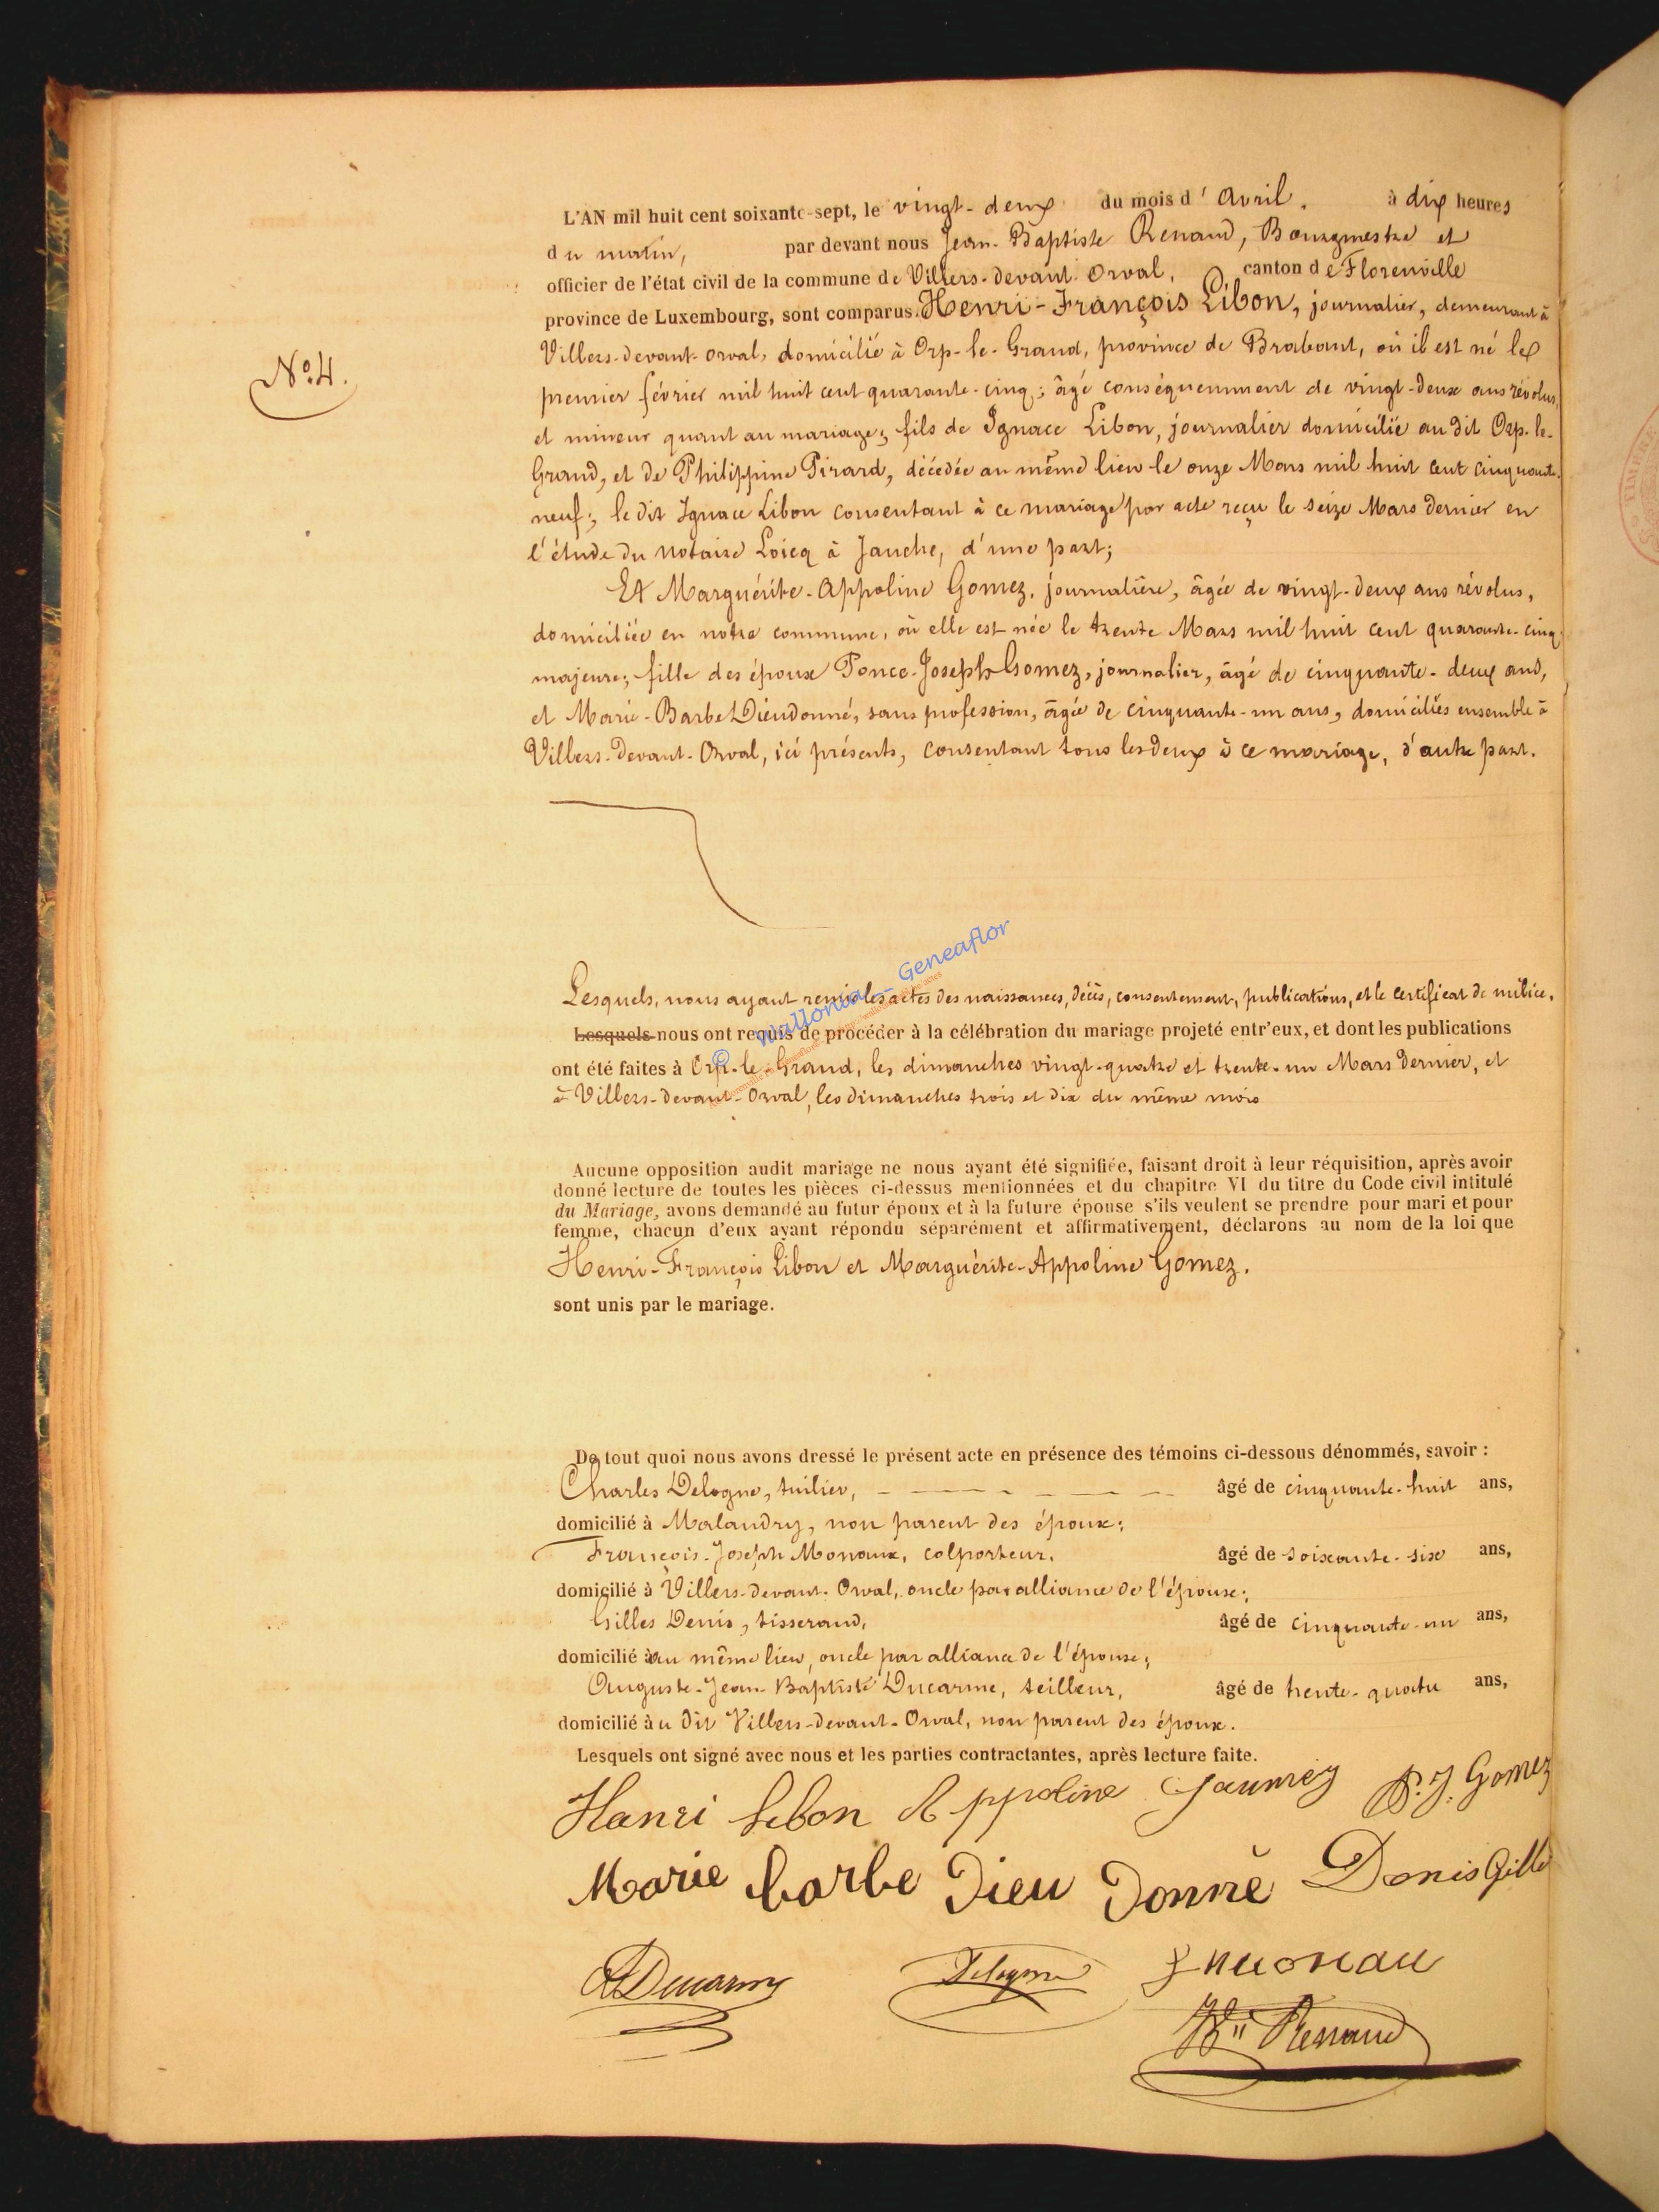 L'AN mil huit cent soixante-sept, le vingt-deux du mois d'Avril. à dix heures
du matin, par devant nous Jean-Baptiste Renaud, Bourgmestre et
officier de l'état civil de la commune de Villers-devant-Orval, canton de Florenville
province de Luxembourg, sont comparus Henri-François Libon, journalier, demeurant à
Villers-devant-Orval, domicilié à Orp-le-Grand, province de Brabant, où il est né le
N°4.
premier février mil huit cent quarante-cinq; âgé conséquemment de vingt-deux ans révolus,
et mineur quant au mariage; fils de Ignace Libon, journalier domicilié au dit Orp-le-
Grand, et de Philippine Pirard, décédée au même lieu le onze Mars mil huit cent cinquante-
neuf; le dit Ignace Libon consentant à ce mariage par acte reçu le seize Mars dernier en
l'étude du notaire Loicq à Jauche, d'une part;
Et Marguérite-Appoline Gomez, journalière, âgée de vingt-deux ans révolus,
domiciliée en notre commune, où elle est née le trente Mars mil huit cent quarante-cinq
majeure; fille des époux Ponce-Joseph Gomez, journalier, âgé de cinquante-deux ans,
et Marie-Barbe Dieudonné, sans profession, âgée de cinquante-un ans, domiciliés ensemble à
Villers-devant-Orval, ici présents, consentant tous les deux à ce mariage, d'autre part.
© Wallonia - Geneaflor
Lesquels, nous ayant remis les actes des naissances, décès, consentement, publications, et le certificat de milice,
Lesquels nous ont requis de procéder à la célébration du mariage projeté entr'eux, et dont les publications
ont été faites à Orp-le-Grand, les dimanches vingt-quatre et trente-un Mars dernier, et
à Villers-devant-Orval, les dimanches trois et dix du même mois
Aucune opposition audit mariage ne nous ayant été signifiée, faisant droit à leur réquisition, après avoir
donné lecture de toutes les pièces ci-dessus mentionnées et du chapitre VI du titre du Code civil intitulé
du Mariage, avons demandé au futur époux et à la future épouse s'ils veulent se prendre pour mari et pour
femme, chacun d'eux ayant répondu séparément et affirmativement, déclarons au nom de la loi que
Henri-François Libon et Marguérite-Appoline Gomez.
sont unis par le mariage.
De tout quoi nous avons dressé le présent acte en présence des témoins ci-dessous dénommés, savoir :
Charles Delogne, tuilier, âgé de cinquante-huit ans,
domicilié à Malandry, non parent des époux;
François-Joseph Monaux, colporteur, âgé de soixante-six ans,
domicilié à Villers-devant-Orval, oncle par alliance de l'épouse;
Gilles Denis, tisserand, âgé de cinquante-un ans,
domicilié au même lieu, oncle par alliance de l'épouse;
Auguste-Jean-Baptiste Ducarme, teilleur, âgé de trente-quatre ans,
domicilié au dit Villers-devant-Orval, non parent des époux.
Lesquels ont signé avec nous et les parties contractantes, après lecture faite.
Hanri Lebon Appoline P. J. Gomez
Marie barbe Dieu Donné Denis Gille
Ducarme Delogne
Renaud